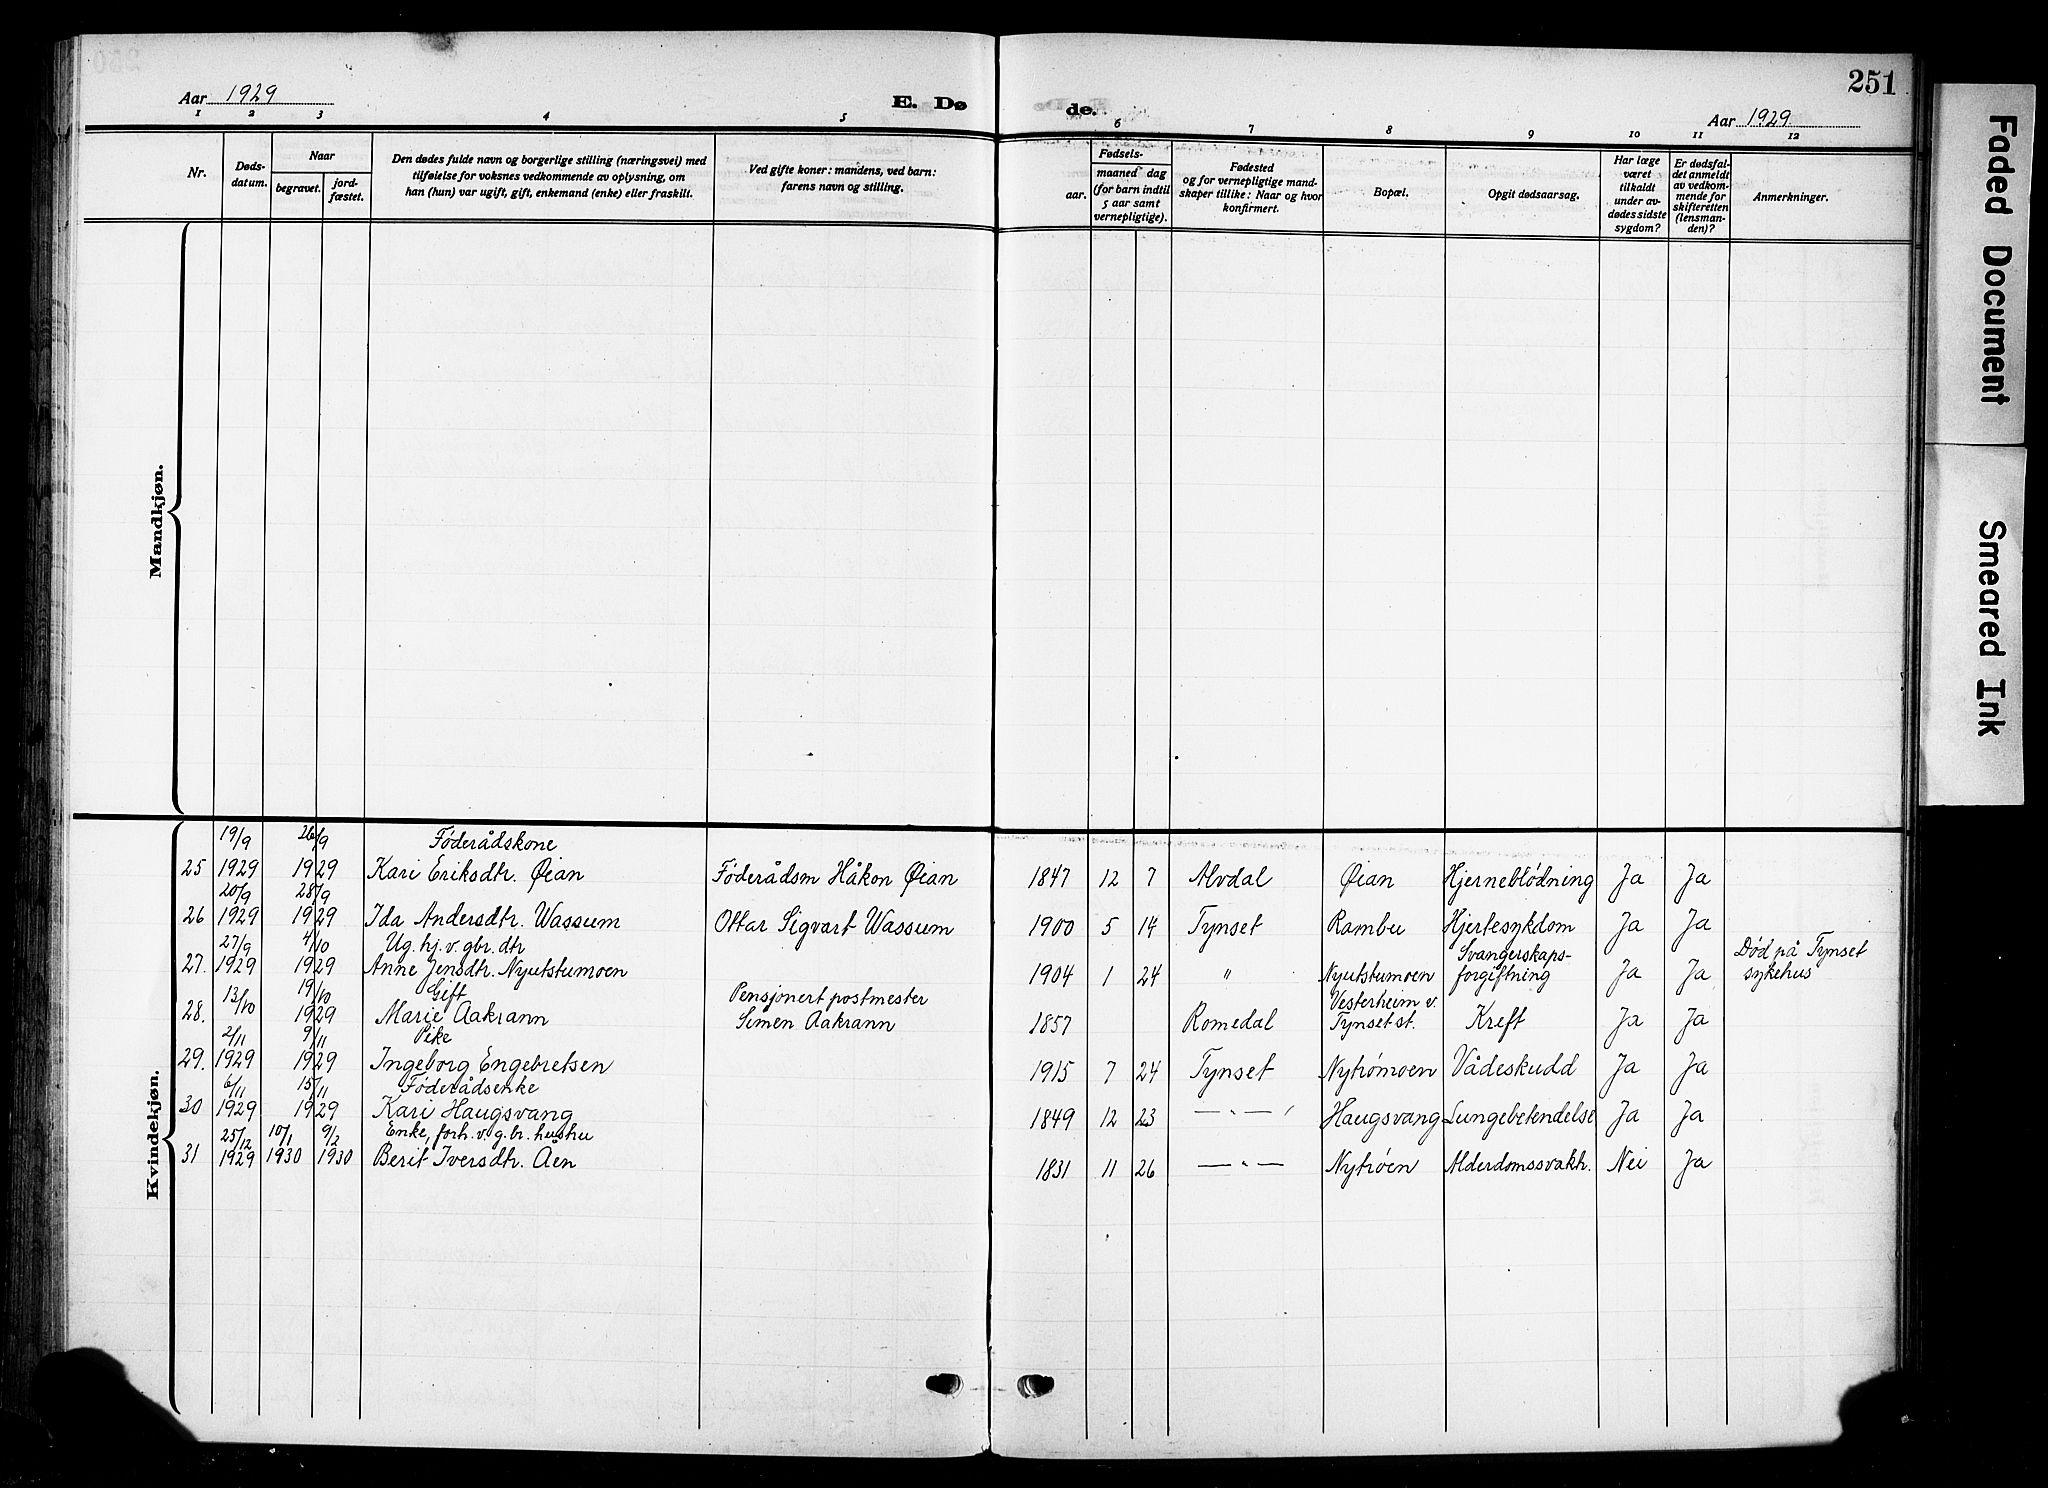 251
Aar 1929
E. Døde.
Aar 1929.
1 2 3 4 5 6 7 8 9 10 11 12
Nr.
Døds-
datum.
Naar
begravet.
jord-
fæstet.
Den dødes fulde navn og borgerlige stilling (næringsvei) med
tilføielse for voksnes vedkommende av oplysning, om
han (hun) var ugift, gift, enkemand (enke) eller fraskilt.
Ved gifte koner: mandens, ved barn:
farens navn og stilling.
Fødsels-
aar.
maaned dag
(for barn indtil
5 aar samt
vernepligtige).
Fødested
og for vernepligtige mand-
skaper tillike: Naar og hvor
konfirmert.
Bopæl.
Opgit dødsaarsag.
Har læge
været
tilkaldt
under av-
dødes sidste
sygdom?
Er dødsfal-
det anmeldt
av vedkom-
mende for
skifteretten
(lensman-
den)?
Anmerkninger.
Mandkjøn.
Kvindekjøn.
19/9 26/9 Føderådskone
25 1929 1929 Kari Eriksdtr. Øian Føderådsm Håkon Øian 1847 12 7 Alvdal Øian Hjerneblødning Ja Ja
20/9 28/9
26 1929 1929 Ida Andersdtr. Wassum Ottar Sigvart Wassum 1900 5 14 Tynset Rambu Hjertesykdom Ja Ja
27/9 4/10 Ug. hj. v. gbr. dtr Svangerskaps- Død på Tynset
27. 1929 1929 Anne Jensdtr. Nyutstumoen 1904 1 24 " Nyutstumoen forgiftning Ja Ja sykehus
13/10 19/10 Gift Pensjonert postmester Vesterheim v.
28. 1929 Marie Aakrann Simen Aakrann 1857 Romedal Tynset st. Kreft Ja Ja
2/11 9/11 Pike
29. 1929 1929 Ingeborg Engebretsen 1915 7 24 Tynset Nytrømoen Vådeskudd Ja Ja
6/11 15/11 Føderådsenke
30 1929 1929 Kari Haugsvang 1849 12 23 — " — Haugsvang Lungebetendelse Ja Ja
25/12 10/1 9/2 Enke, forh. v. g.br. hushu
31 1929 1930 1930 Berit Iversdtr. Åen 1831 11 26 — " — Nytrøen Alderdomssvakh. Nei Ja
Faded Document
Smeared Ink